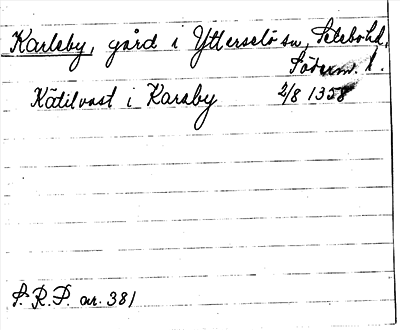 Karleby, gård i Ytterselö sn, Selebo hd,
Söderm. l.
Kätilvast i Karaby 2/8 1358
S. R. P. nr. 381